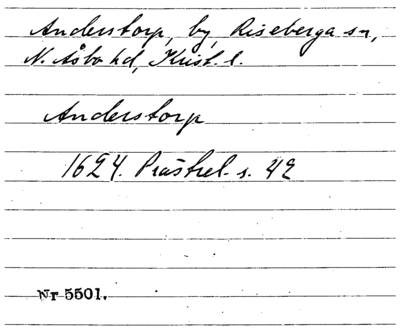 Anderstorp, by, Riseberga sn,
N. Åsbo hd, Krist. l.
Anderstorp
1624. Prästrel. s. 42
Nr 5501.